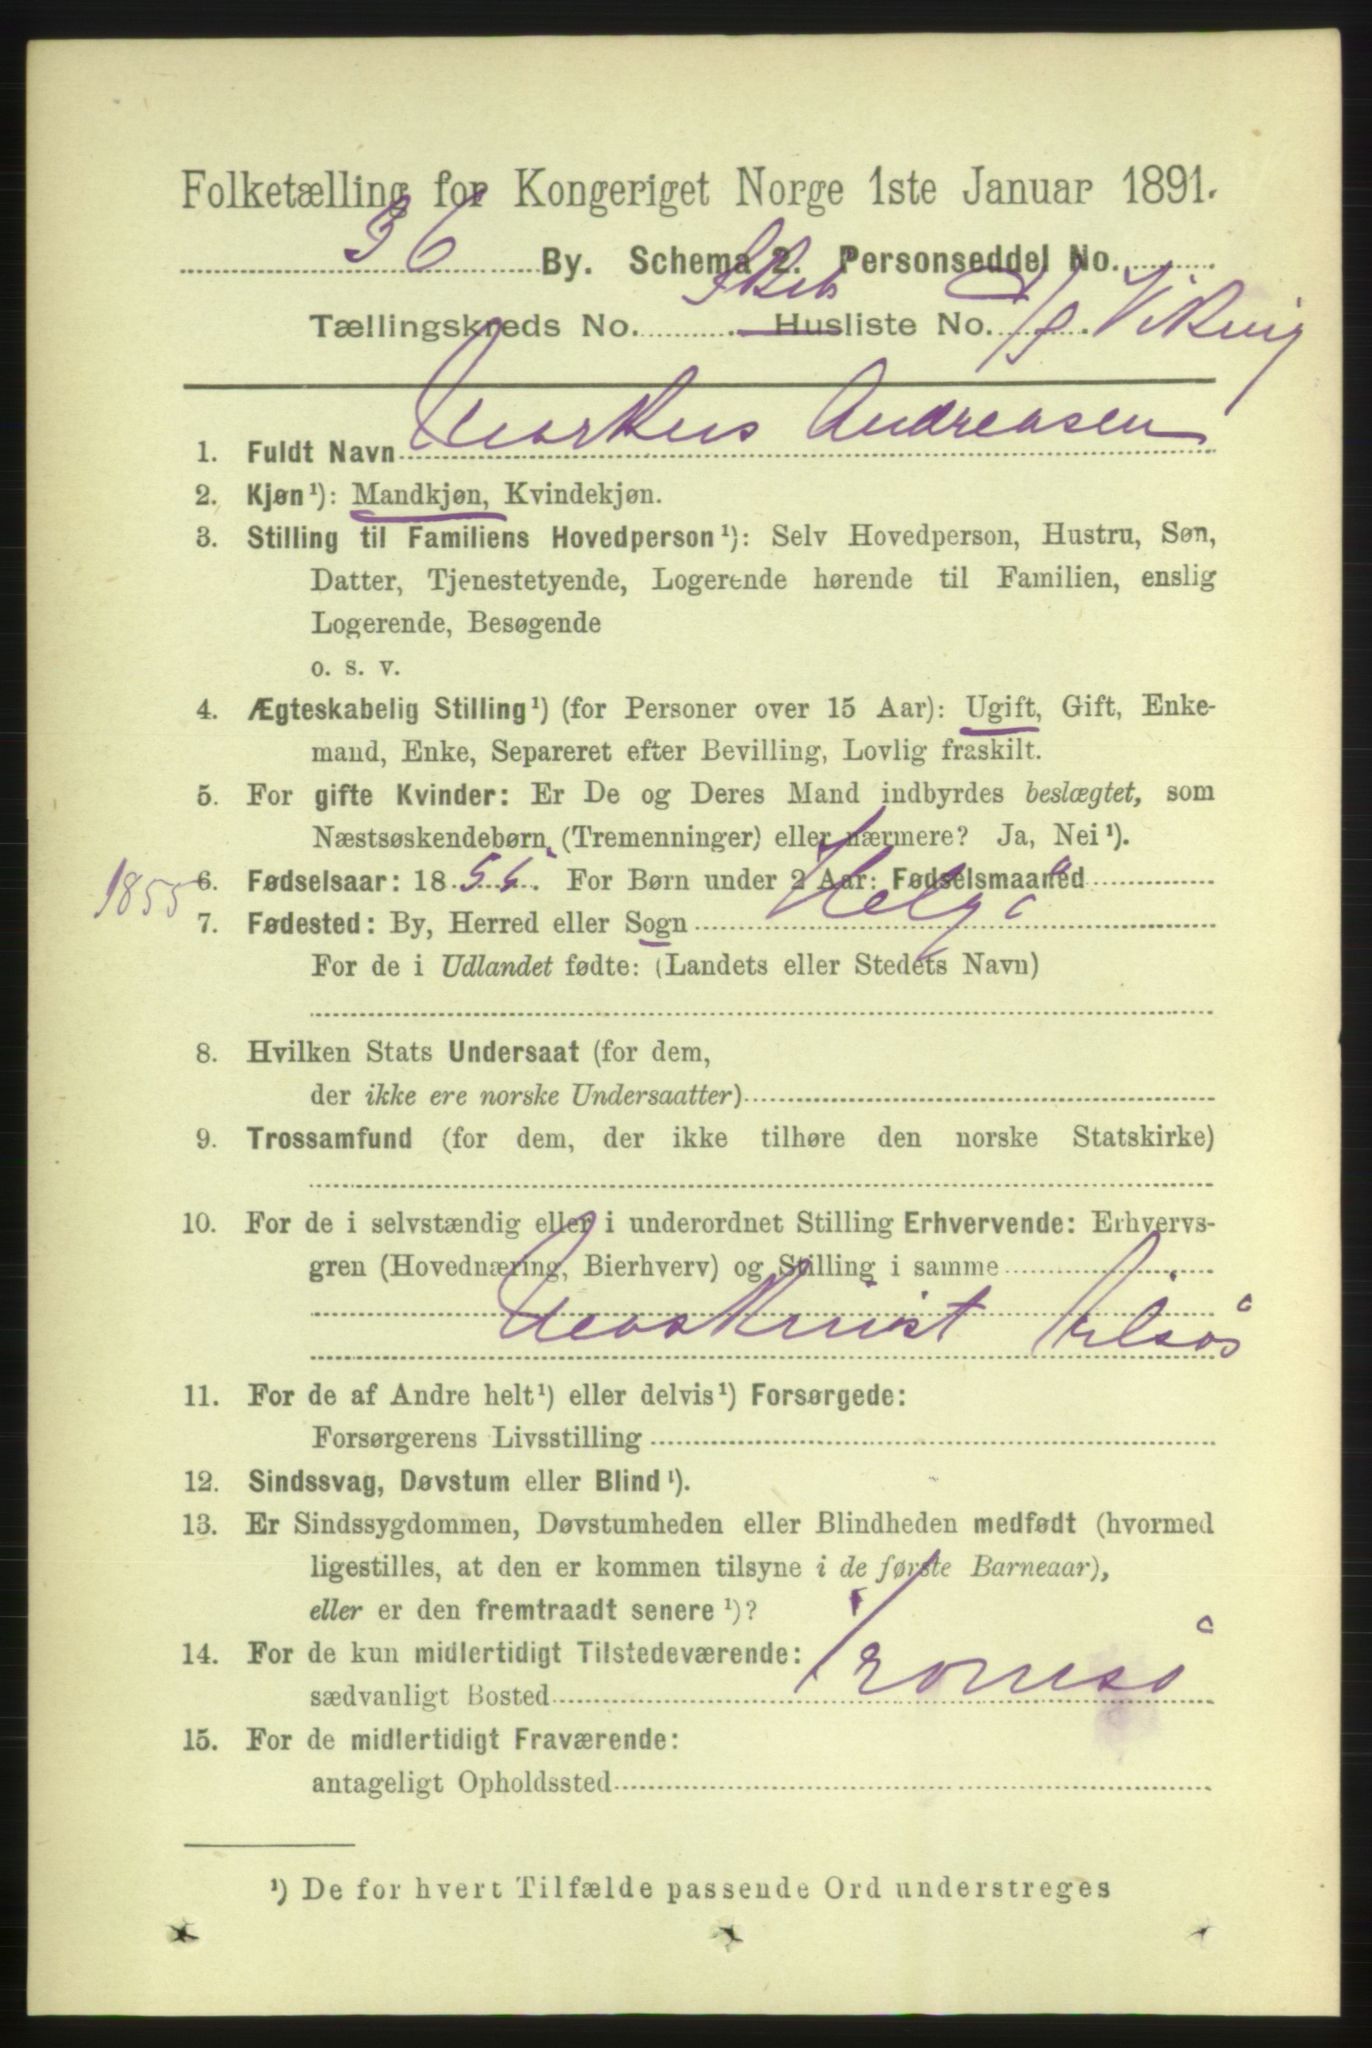 Folketælling for Kongeriget Norge 1ste Januar 1891.
36 By. Schema 2. Personseddel No.
Tællingskreds No. Skib Husliste No. D/S Viking
1. Fuldt Navn Markus Andreasen
2. Kjøn¹): Mandkjøn, Kvindekjøn.
3. Stilling til Familiens Hovedperson¹): Selv Hovedperson, Hustru, Søn,
Datter, Tjenestetyende, Logerende hørende til Familien, enslig
Logerende, Besøgende
o. s. v.
4. Ægteskabelig Stilling¹) (for Personer over 15 Aar): Ugift, Gift, Enke-
mand, Enke, Separeret efter Bevilling, Lovlig fraskilt.
5. For gifte Kvinder: Er De og Deres Mand indbyrdes beslægtet, som
Næstsøskendebørn (Tremenninger) eller nærmere? Ja, Nei¹).
1855 6. Fødselsaar: 1855. For Børn under 2 Aar: Fødselsmaaned
7. Fødested: By, Herred eller Sogn Helgø
For de i Udlandet fødte: (Landets eller Stedets Navn)
8. Hvilken Stats Undersaat (for dem,
der ikke ere norske Undersaatter)
9. Trossamfund (for dem, der ikke tilhøre den norske Statskirke)
10. For de i selvstændig eller i underordnet Stilling Erhvervende: Erhvervs-
gren (Hovednæring, Bierhverv) og Stilling i samme
Maskinist
11. For de af Andre helt¹) eller delvis¹) Forsørgede:
Forsørgerens Livsstilling
12. Sindssvag, Døvstum eller Blind¹).
13. Er Sindssygdommen, Døvstumheden eller Blindheden medfødt (hvormed
ligestilles, at den er kommen tilsyne i de første Barneaar),
eller er den fremtraadt senere¹)?
14. For de kun midlertidigt Tilstedeværende:
sædvanligt Bosted Tromsø
15. For de midlertidigt Fraværende:
antageligt Opholdssted
¹) De for hvert Tilfælde passende Ord understreges